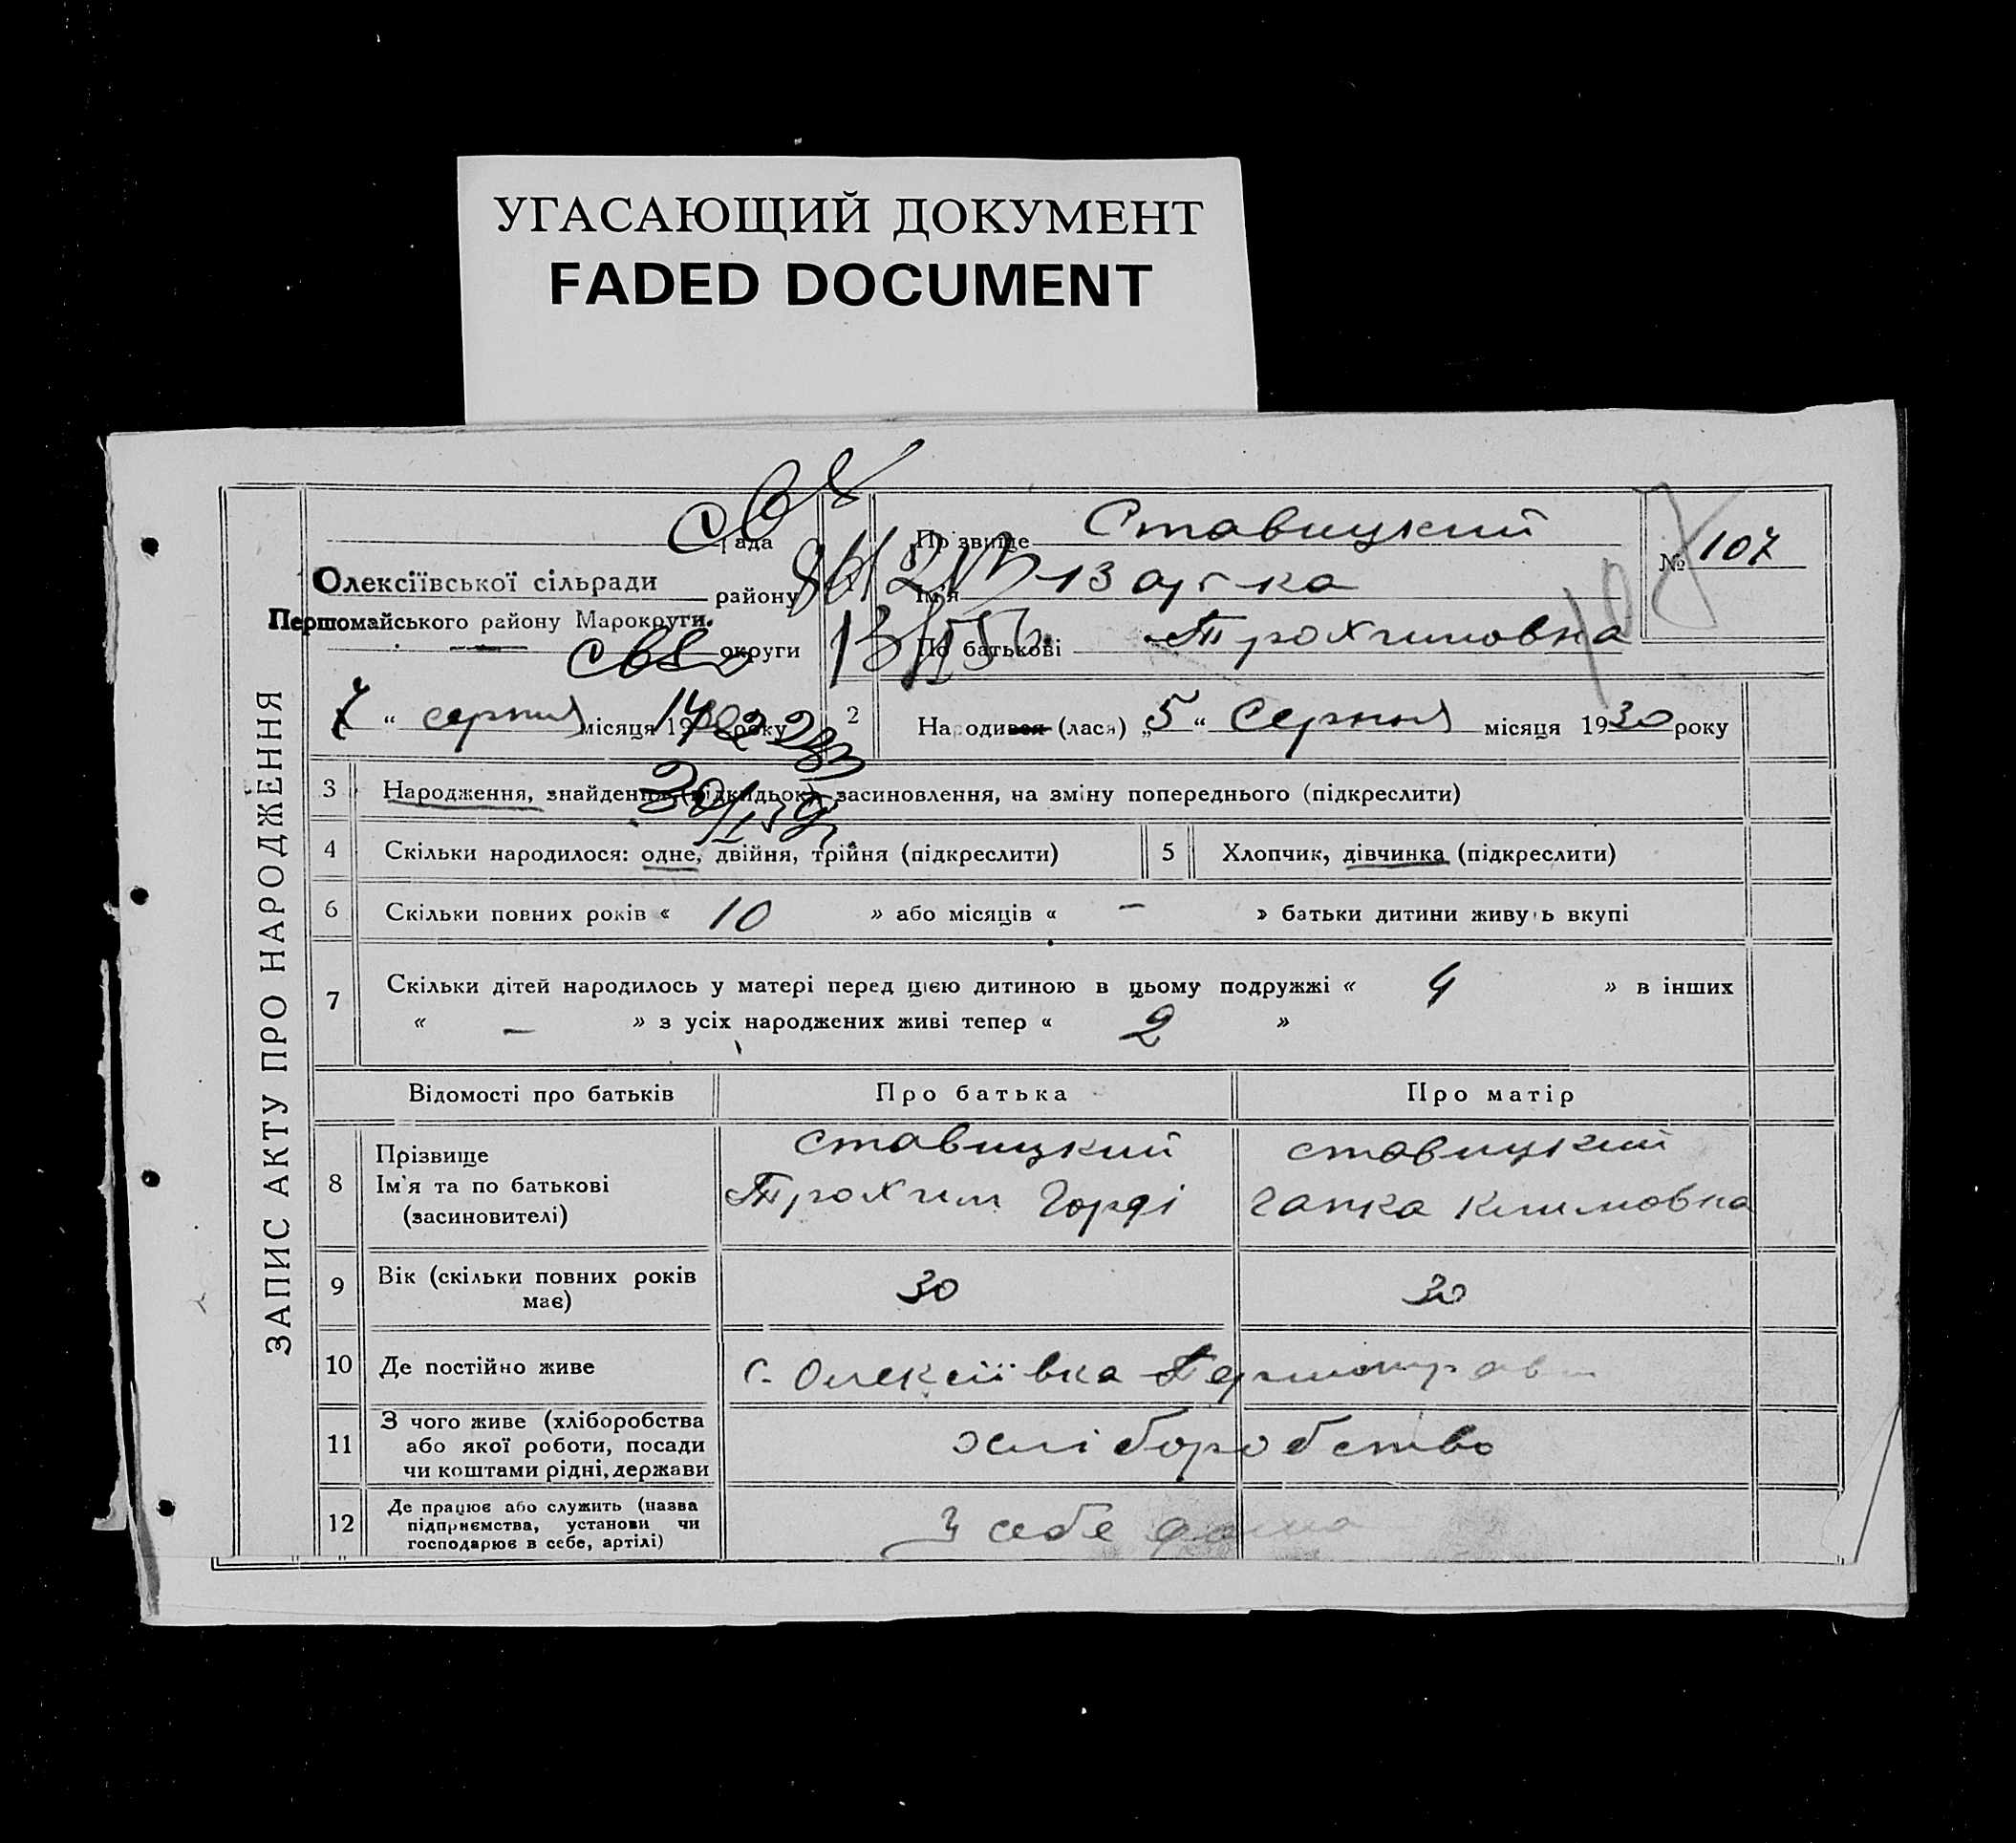 УГАСАЮЩИЙ ДОКУМЕНТ
FADED DOCUMENT
ЗАПИС АКТУ ПРО НАРОДЖЕННЯ
рада
Олексіївської сільради району
Першомайського району Марокруги.
округи
7 " серпня місяця 19 року
Прізвище Ставицкий
Ім'я
По батькові Трохимовна
№ 107
2 Народився (лася) „ 5 " Серпня місяця 1930 року
3 Народження, знайдення (підкидьок), засиновлення, на зміну попереднього (підкреслити)
4 Скільки народилося: одне, двійня, трійня (підкреслити)
5 Хлопчик, дівчинка (підкреслити)
6 Скільки повних років « 10 » або місяців « – » батьки дитини живуть вкупі
7 Скільки дітей народилось у матері перед цією дитиною в цьому подружжі « 4 » в інших
« – » з усіх народжених живі тепер « 2 »
Відомості про батьків Про батька Про матір
8 Прізвище ставицкий ставицкий
Ім'я та по батькові Трохим Горді гапка Климовна
(засиновителі)
9 Вік (скільки повних років 30 30
має)
10 Де постійно живе с. Олексіївка
11 З чого живе (хліборобства
або якої роботи, посади хліборобство
чи коштами рідні, держави
12 Де працює або служить (назва
підприємства, установи чи У себе дома
господарює в себе, артілі)